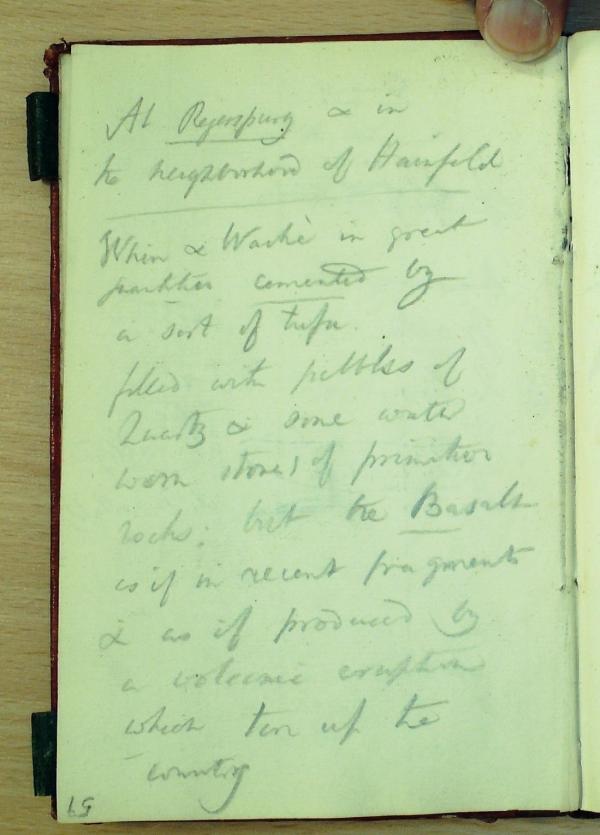 At Regersburg & in
the neighborhood of Hainfeld
Whin & Wacké in great
quantities cemented by
a sort of tufa.
filled with pebbles of
Quartz & some water
worn stones of primitive
rocks; but the Basalt
as if in recent fragments
& as if produced by
a volcanic eruption
which tore up the
country
59